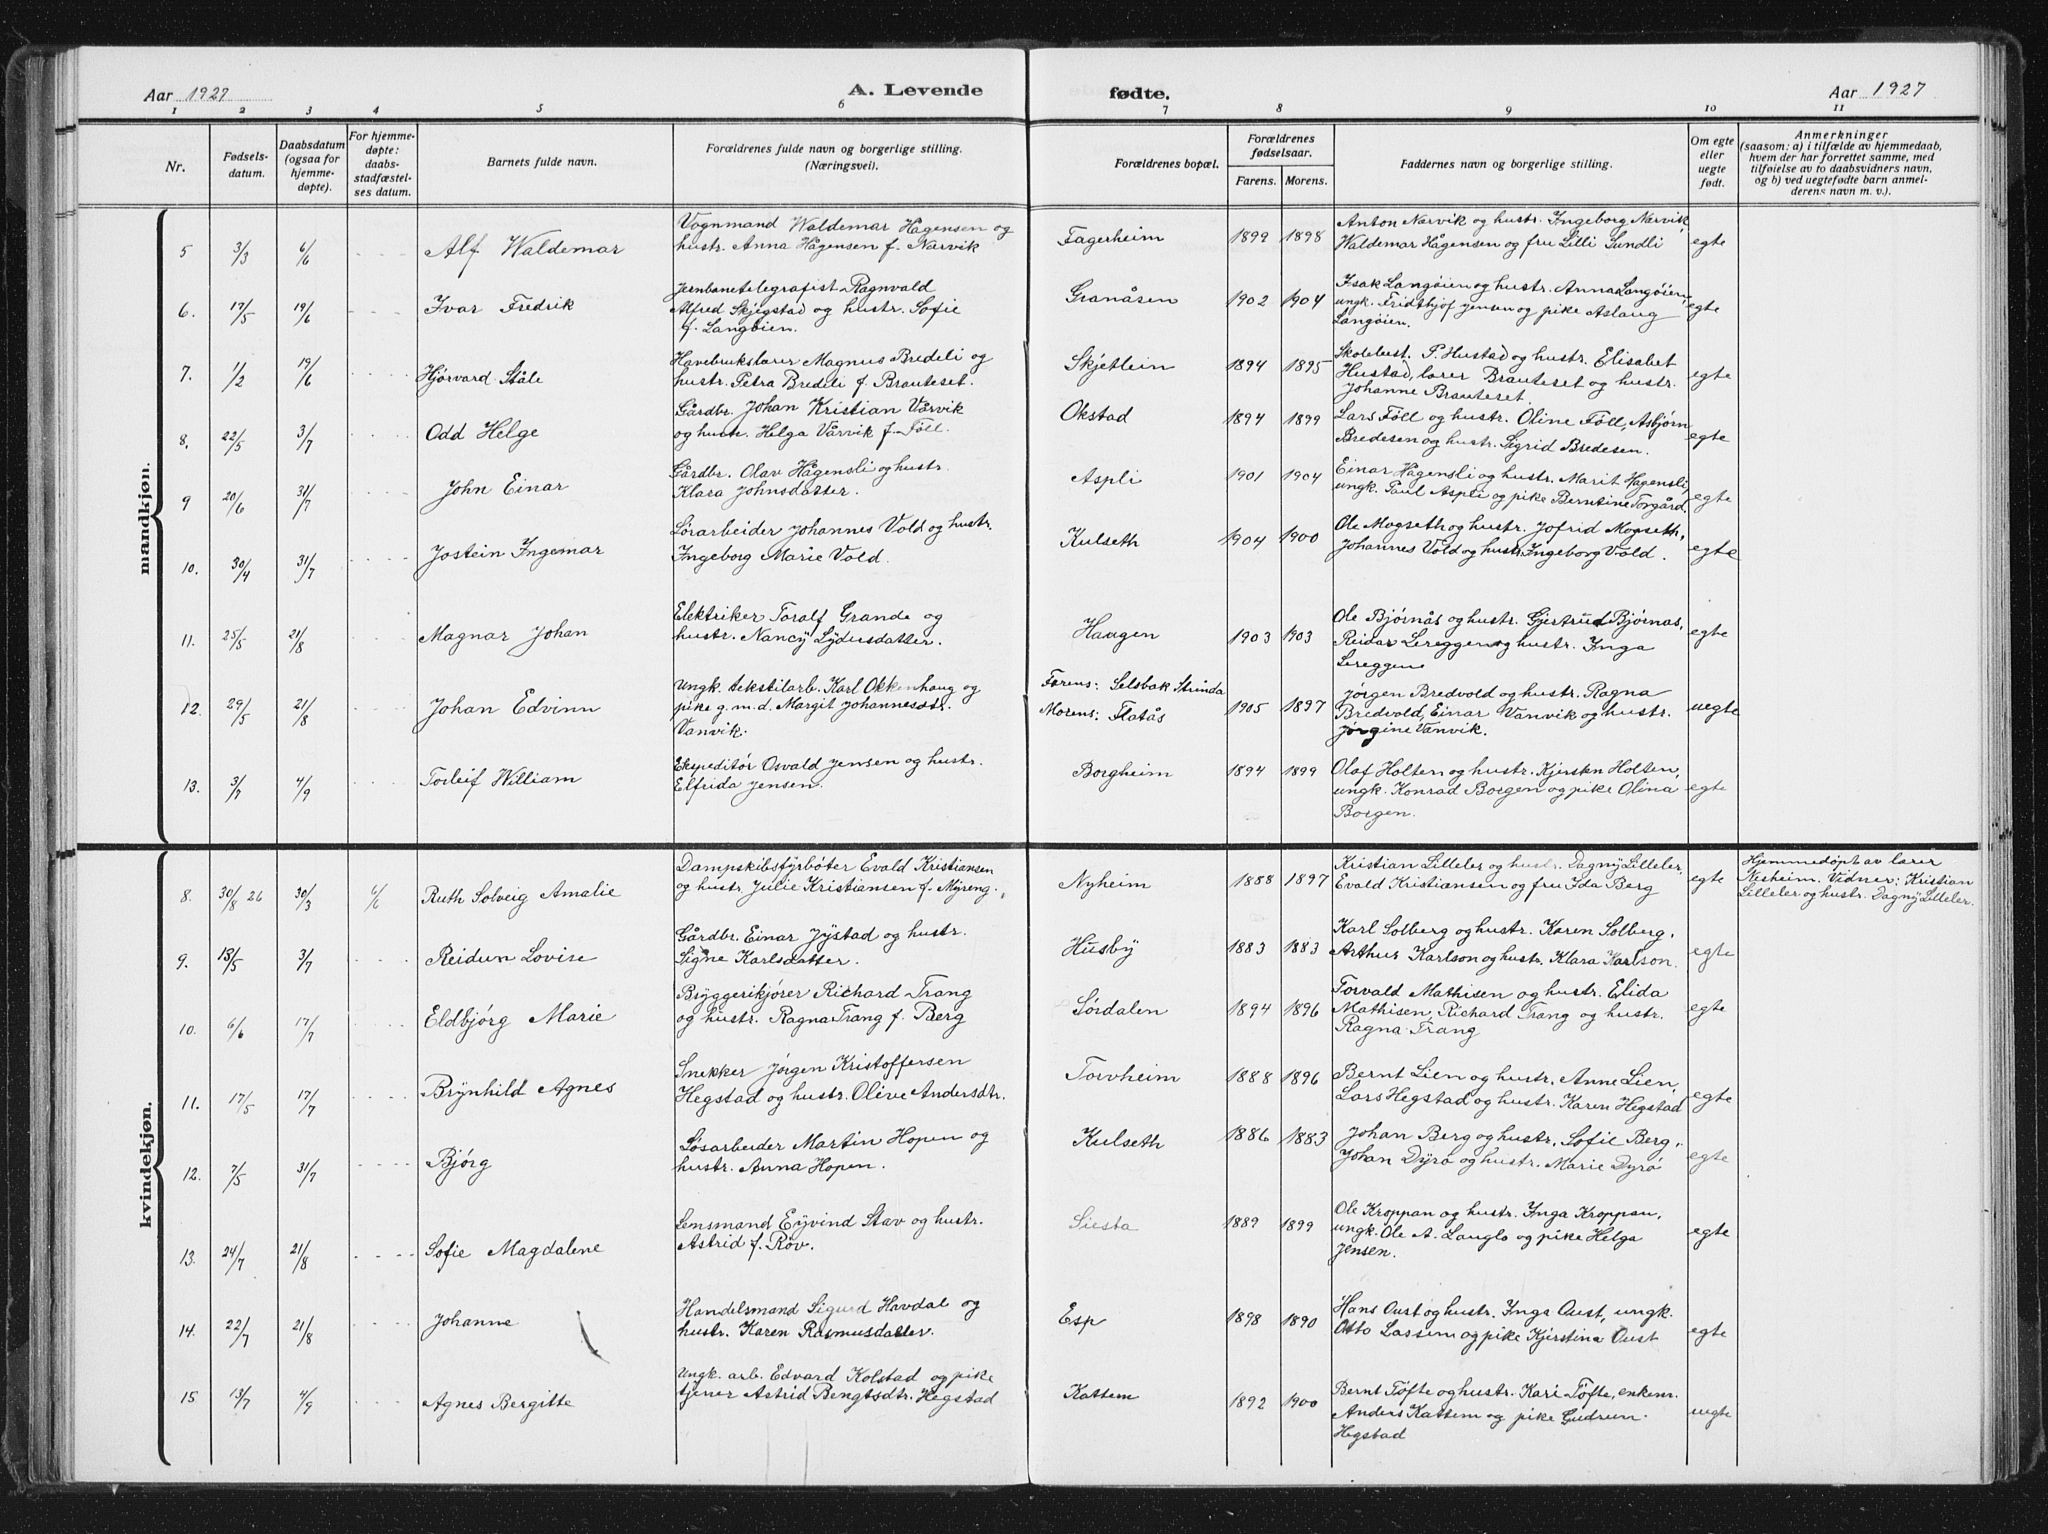 Aar 1927
A. Levende
fødte.
Aar 1927
1 2 3 4 5 6 7 8 9 10 11
Nr.
Fødsels-
datum.
Daabsdatum
(ogsaa for
hjemme-
døpte).
For hjemme-
døpte:
daabs-
stadfæstel-
ses datum.
Barnets fulde navn.
Forældrenes fulde navn og borgerlige stilling.
(Næringsvei).
Forældrenes bopæl.
Forældrenes
fødselsaar.
Farens. Morens.
Faddernes navn og borgerlige stilling.
Om egte
eller
uegte
født.
Anmerkninger
(saasom: a) i tilfælde av hjemmedaab,
hvem der har forrettet samme, med
tilføielse av to daabsvidners navn,
og b) ved uegtefødte barn anmel-
derens navn m. v.).
mandkjøn.
5 3/3 6/6 Alf Waldemar
Vognmand Waldemar Hågensen og
hustr. Anna Hågensen f. Narvik
Fagerheim 1899 1898
Anton Narvik og hustr. Ingeborg Narvik,
Waldemar Hågensen og fru Lilli Sundli
egte
6. 17/5 19/6 Ivar Fredrik
Jernbanetelegrafist Ragnvald
Alfred Skjegstad og hustr. Sofie
f. Langöien.
Granåsen 1902 1904
Isak Langöien og hustr. Anna Langöien,
ungk. Fridthjof Jensen og pike Aslaug
Langöien.
egte
7. 1/2 19/6 Hjörvard Ståle
Havebrukslærer Magnus Bredeli og
hustr. Petra Bredeli f. Brauteset.
Skjetlein 1894 1895
Skolebest. P. Hustad og hustr. Elisabet
Hustad, lærer Brauteset og hustr.
Johanne Brauteset.
egte
8. 22/5 3/7 Odd Helge
Gårdbr. Johan Kristian Vårvik
og hustr. Helga Vårvik f. Föll.
Okstad 1894 1899
Lars Föll og hustr. Oline Föll, Asbjörn
Bredesen og hustr. Sigrid Bredesen.
egte
9 20/6 31/7 John Einar
Gårdbr. Olav Hågensli og hustr.
Klara Johnsdatter.
Aspli 1901 1904
Einar Hågensli og hustr. Marit Hågensli,
ungk. Paul Aspli og pike Berntine Torgård.
egte
10. 30/4 31/7 Jostein Ingemar
Lörarbeider Johannes Vold og hustr.
Ingeborg Marie Vold.
Kulseth 1904 1900
Ole Mogseth og hustr. Jofrid Mogseth,
Johannes Vold og hustr. Ingeborg Vold.
egte
11. 25/5 21/8 Magnar Johan
Elektriker Toralf Grande og
hustr. Nancy Lydersdatter.
Haugen 1903 1903
Ole Bjørnås og hustr. Gjertrud Bjørnås,
Reidar Lereggen og hustr. Inga
Lereggen
egte
12. 29/5 21/8 Johan Edvinn
Ungk. tekstilarb. Karl Okkenhaug og
pike g.m.d. Margit Johannesdtr.
Vanvik.
Farens: Selsbak Strinda
Morens: Flatås 1905 1897
Jørgen Bredvold og hustr. Ragna
Bredvold, Einar Vanvik og hustr.
Jørgine Vanvik.
uegte
13. 3/7 4/9 Torleif William
Ekspeditör Osvald Jensen og hustr.
Elfrida Jensen.
Borgheim 1894 1899
Olaf Holten og hustr. Kjersten Holten,
ungk. Konrad Borgen og pike Olina
Borgen.
egte
kvindekjøn.
8. 30/8 26 30/3 6/6 Ruth Solveig Amalie
Dampskibsfyrböter Evald Kristiansen
og hustr. Julie Kristiansen f. Myreng.
Nyheim 1888 1897
Kristian Lilleler og hustr. Dagny Lilleler,
Evald Kristiansen og fru Ida Berg
egte
Hjemmedöpt av lærer
Nesheim. Vidner: Kristian
Lilleler og hustr. Dagny Lilleler.
9. 18/5 3/7 Reidun Lovise
Gårdbr. Einar Jystad og hustr.
Signe Karlsdatter.
Husby 1883 1883
Karl Solberg og hustr. Karen Solberg,
Arthur Karlson og hustr. Klara Karlson.
egte
10. 6/6 17/7 Eldbjörg Marie
Bryggerikjörer Richard Trang
og hustr. Ragna Trang f. Berg
Sördalen 1894 1896
Torvald Mathisen og hustr. Elida
Mathisen, Richard Trang og hustr.
Ragna Trang
egte
11. 17/5 17/7 Brynhild Agnes
Snekker Jörgen Kristoffersen
Hegstad og hustr. Olive Andersdtr.
Torvheim 1888 1896
Bernt Lien og hustr. Anne Lien,
Lars Hegstad og hustr. Karen Hegstad
egte
12. 7/5 31/7 Bjørg
Løsarbeider Martin Hopen og
hustr. Anna Hopen.
Kulseth 1886 1883
Johan Berg og hustr. Sofie Berg,
Johan Dyrø og hustr. Marie Dyrø
egte
13. 24/7 21/8 Sofie Magdalene
Lensmand Eyvind Stav og hustr.
Astrid f. Röv.
Siesta 1889 1899
Ole Kroppan og hustr. Inga Kroppan,
ungk. Ole A. Langlo og pike Helga
Jensen.
egte
14. 22/7 21/8 Johanne
Handelsmand Sigurd Havdal og
hustr. Karen Rasmusdatter.
Esp 1898 1890
Hans Oust og hustr. Inga Oust, ungk.
Otto Lassem og pike Kjerstina Oust
egte
15 13/7 4/9 Agnes Bergitte
Ungk. arb. Edvard Kolstad og pike
tjener Astrid Bengtsdtr. Hegstad
Kattem 1892 1900
Bernt Töfte og hustr. Kari Töfte, enkem.
Anders Kattem og pike Gudrun
Hegstad
uegte